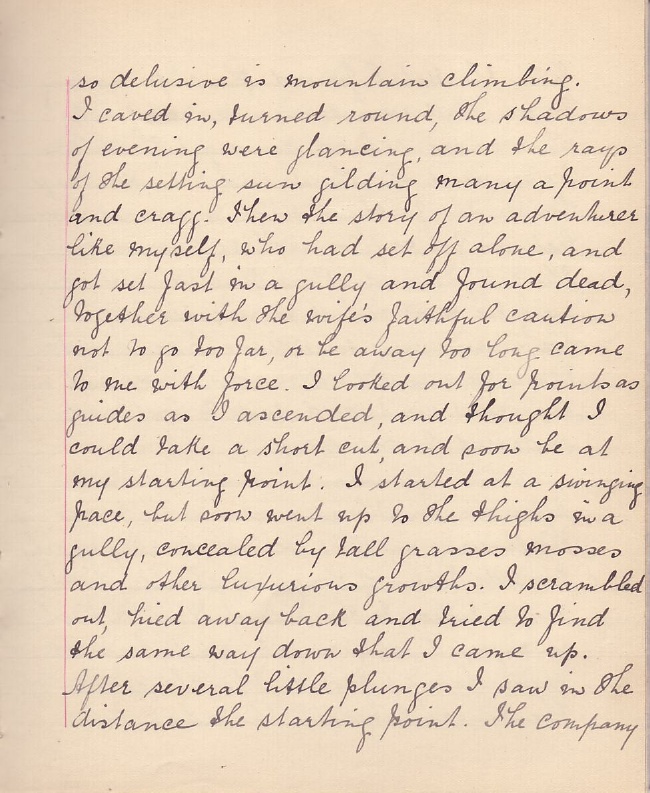 so delusive is mountain climbing.
I caved in, turned round, the shadows
of evening were glancing, and the rays
of the setting sun gilding many a point
and cragg. Then the story of an adventurer
like myself, who had set off alone, and
got set fast in a gully and found dead,
together with the wife's faithful caution
not to go too far, or be away too long came
to me with force. I looked out for points as
guides as I ascended, and thought I
could take a short cut, and soon be at
my starting point. I started at a swinging
pace, but soon went up to the thighs in a
gully, concealed by tall grasses mosses
and other luxurious growths. I scrambled
out, hied away back and tried to find
the same way down that I came up.
After several little plunges I saw in the
distance the starting point. The company